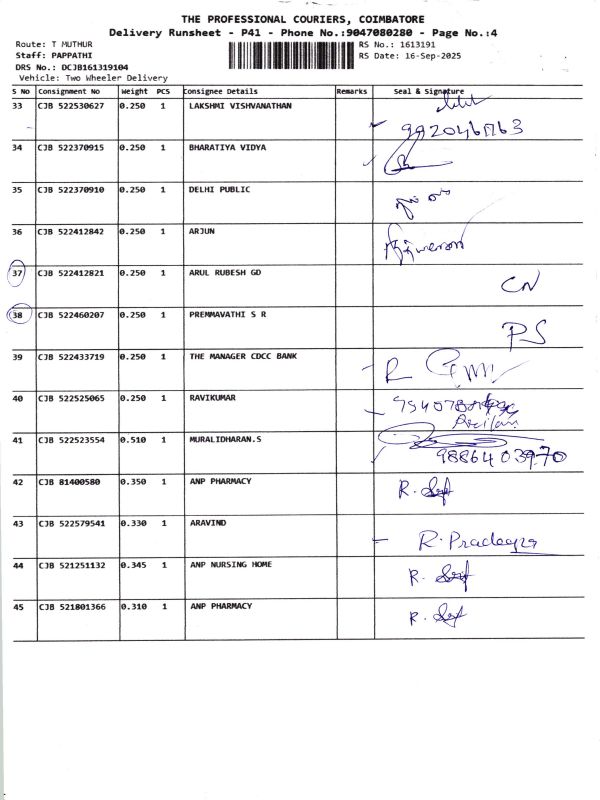 THE PROFESSIONAL COURIERS, COIMBATORE
Delivery Runsheet - P41 - Phone No.:9047080280 - Page No.:4
Route: T MUTHUR
Staff: PAPPATHI
DRS No.: DCJB161319104
Vehicle: Two Wheeler Delivery
RS No.: 1613191
RS Date: 16-Sep-2025
S No Consignment No Weight PCS Consignee Details Remarks Seal & Signature
33 CJB 522530627 0.250 1 LAKSHMI VISHVANATHAN
34 CJB 522370915 0.250 1 BHARATIYA VIDYA
35 CJB 522370910 0.250 1 DELHI PUBLIC
36 CJB 522412842 0.250 1 ARJUN
37 CJB 522412821 0.250 1 ARUL RUBESH GD CN
38 CJB 522460207 0.250 1 PREMMAVATHI S R PS
39 CJB 522433719 0.250 1 THE MANAGER CDCC BANK R
40 CJB 522525065 0.250 1 RAVIKUMAR
41 CJB 522523554 0.510 1 MURALIDHARAN.S
9886403970
42 CJB 81400580 0.350 1 ANP PHARMACY R.
43 CJB 522579541 0.330 1 ARAVIND R.
44 CJB 521251132 0.345 1 ANP NURSING HOME R.
45 CJB 521801366 0.310 1 ANP PHARMACY R.